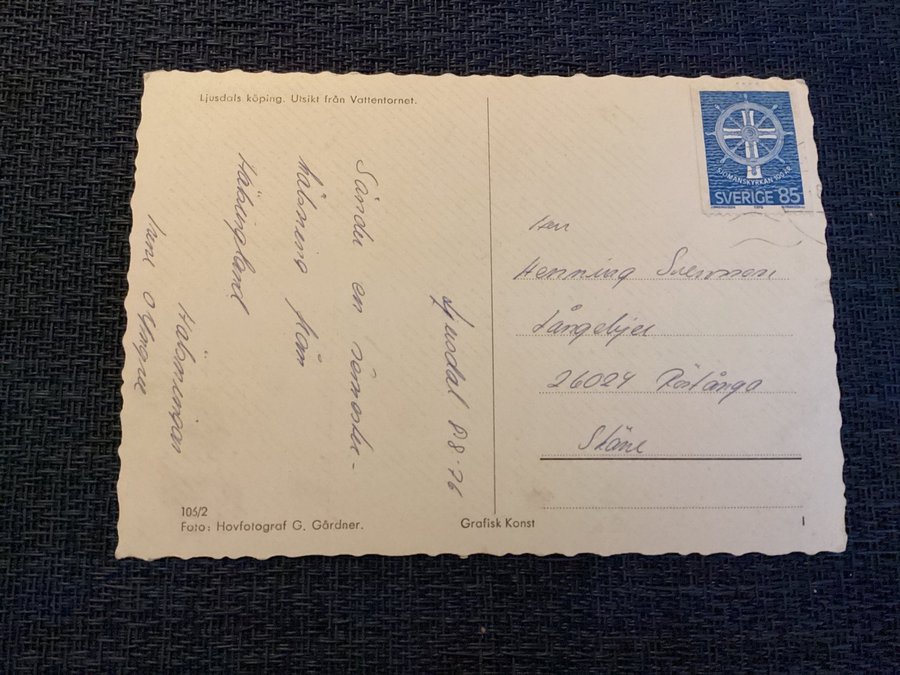 Ljusdals köping. Utsikt från Vattentornet.
Ljusdal 8.8.76
Sänder en semester-
hälsning från
Hälsingland
Hälsningar
SJÖMANSKYRKAN 100 ÅR
SVERIGE 85
Herr
Henning Svensson
26024 Röstånga
Skåne
105/2
Foto: Hovfotograf G. Gårdner.
Grafisk Konst
I